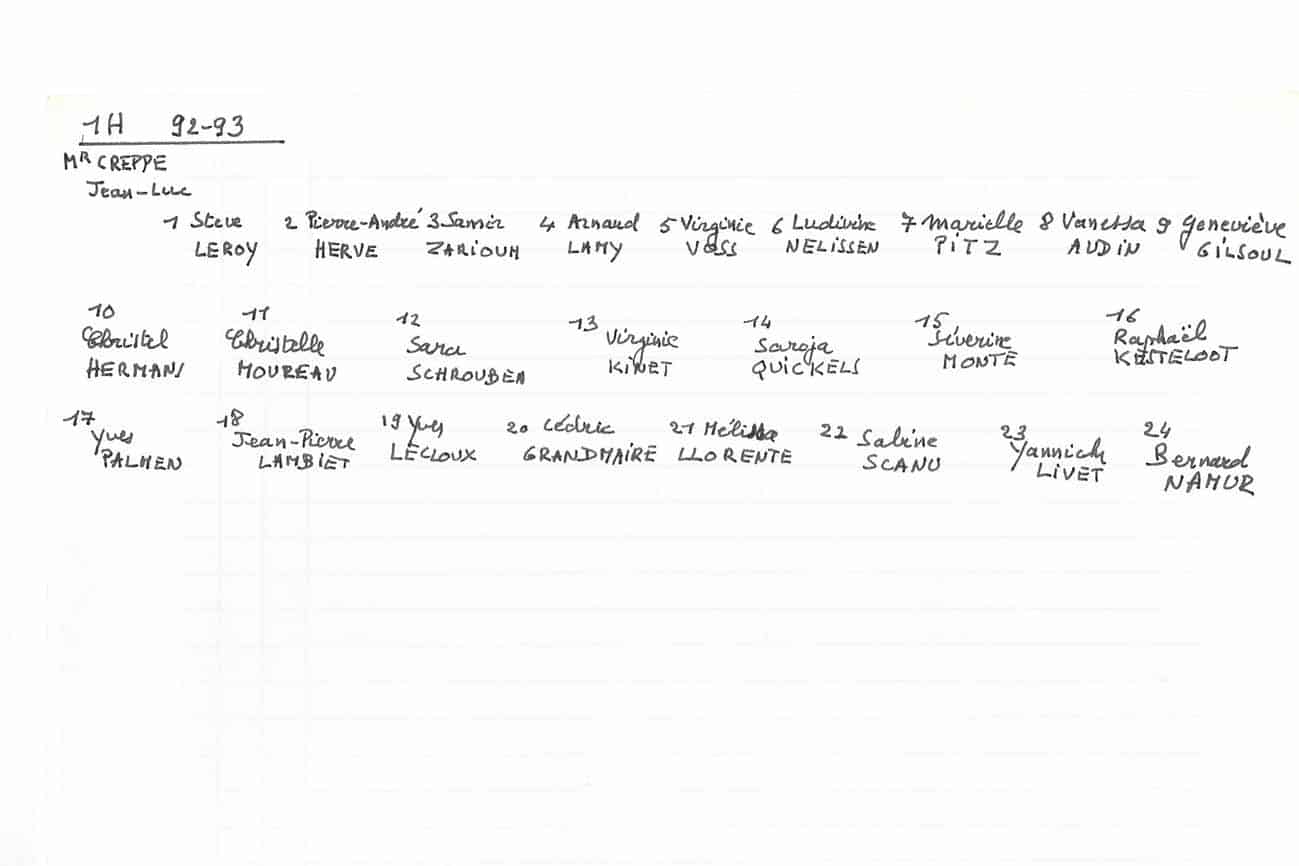 1H 92-93
MR CREPPE
Jean-Luc
1 Steve 2 Pierre-André 3 Samir 4 Arnaud 5 Virginie 6 Ludivine 7 Marielle 8 Vanessa 9 Geneviève
LEROY HERVE ZARIOUH LAMY VOSS NELISSEN PITZ AUDIN GILSOUL
10 11 12 13 14 15 16
Christel Christelle Sara Virginie Saroja Séverine Raphaël
HERMANS MOUREAU SCHROUBEN KINET QUICKELS MONTE KESTELOOT
17 18 19 Yves 20 Cédric 21 Mélissa 22 Sabine 23 24
Yves Jean-Pierre LECLOUX GRANDMAIRE LLORENTE SCANU Yannick Bernard
PALMEN LAMBIET LIVET NAMUR